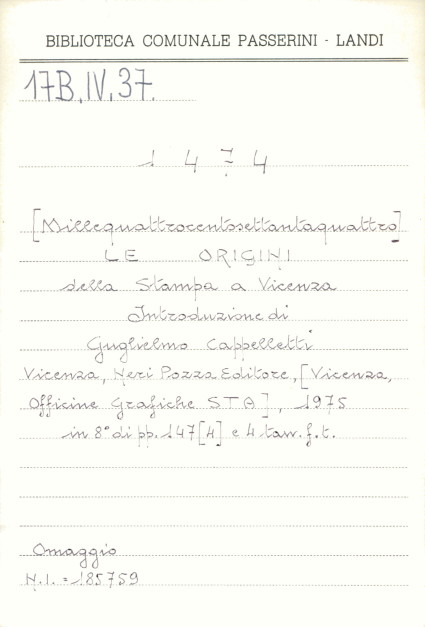 BIBLIOTECA COMUNALE PASSERINI - LANDI
17B.IV.37.
1 4 7 4
[Millequattrocentosettantaquattro]
LE ORIGINI
della Stampa a Vicenza
Introduzione di
Guglielmo Cappelletti
Vicenza, Neri Pozza Editore, [Vicenza,
Officine Grafiche STA], 1975
in 8° di pp. 147[4] e 4 tavv. f.t.
Omaggio
N.I. = 185759